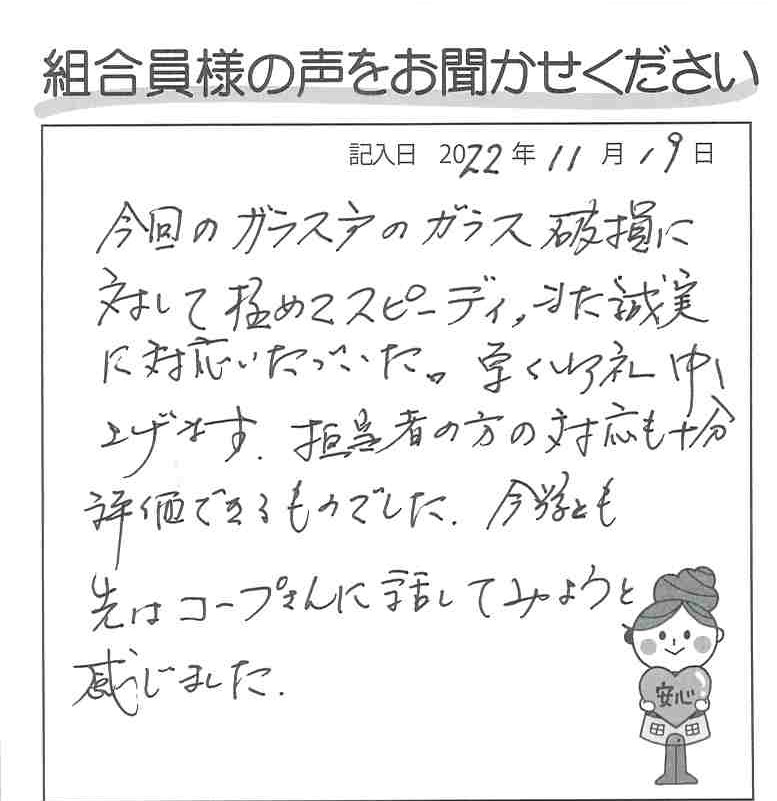 組合員様の声をお聞かせください
記入日 2022年11月19日
今回のガラス戸のガラス破損に
対して極めてスピーディ,また誠実
に対応いただいた。厚く御礼申し
上げます.担当者の方の対応も十分
評価できるものでした.今後とも
先はコープさんに話してみようと
感じました.
安心